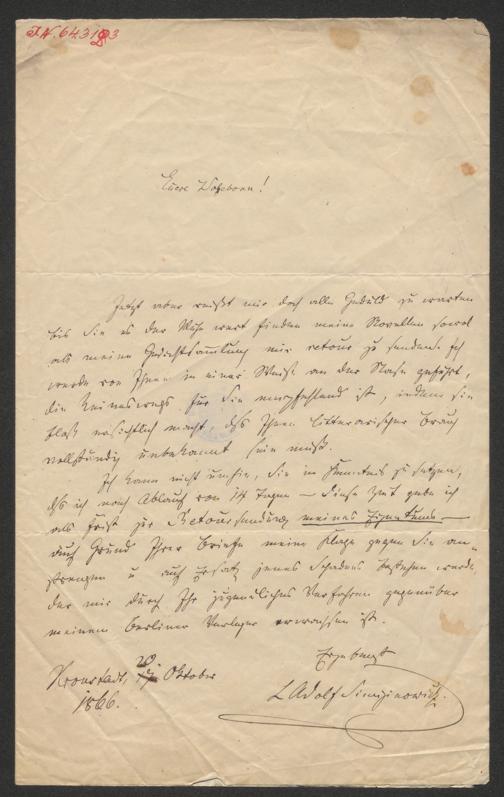 I.N. 643193
Euere Wohlgeboren!
Jetzt aber reißt mir doch alle Geduld zu warten
bis Sie es der Mühe wert finden meine Novellen sowol
als meine Gedichtsammlung mir retour zu senden. Ich
werde von Ihnen in einer Weise an der Nase geführt,
die keineswegs für Sie empfehlend ist, indem sie
bloß ersichtlich macht, daß Ihnen litterarischer Brauch
vollständig unbekannt sein muß.
Ich kann nicht umhin, Sie in Kenntnis zu setzen,
daß ich nach Ablauf von 14 Tagen — diese Zeit gebe ich
als Frist zur Retoursendung meines Eigentums —
auf Grund Ihrer Briefe meine Klage gegen Sie an-
strengen u. auf Ersatz jenes Schadens bestehen werde,
der mir durch Ihr eigentliches Verfahren gegenüber
meinem Berliner Verleger erwachsen ist.
Ergebenst
Kronstadt, 20 Oktober
1866.
L Adolf Simiginowicz.